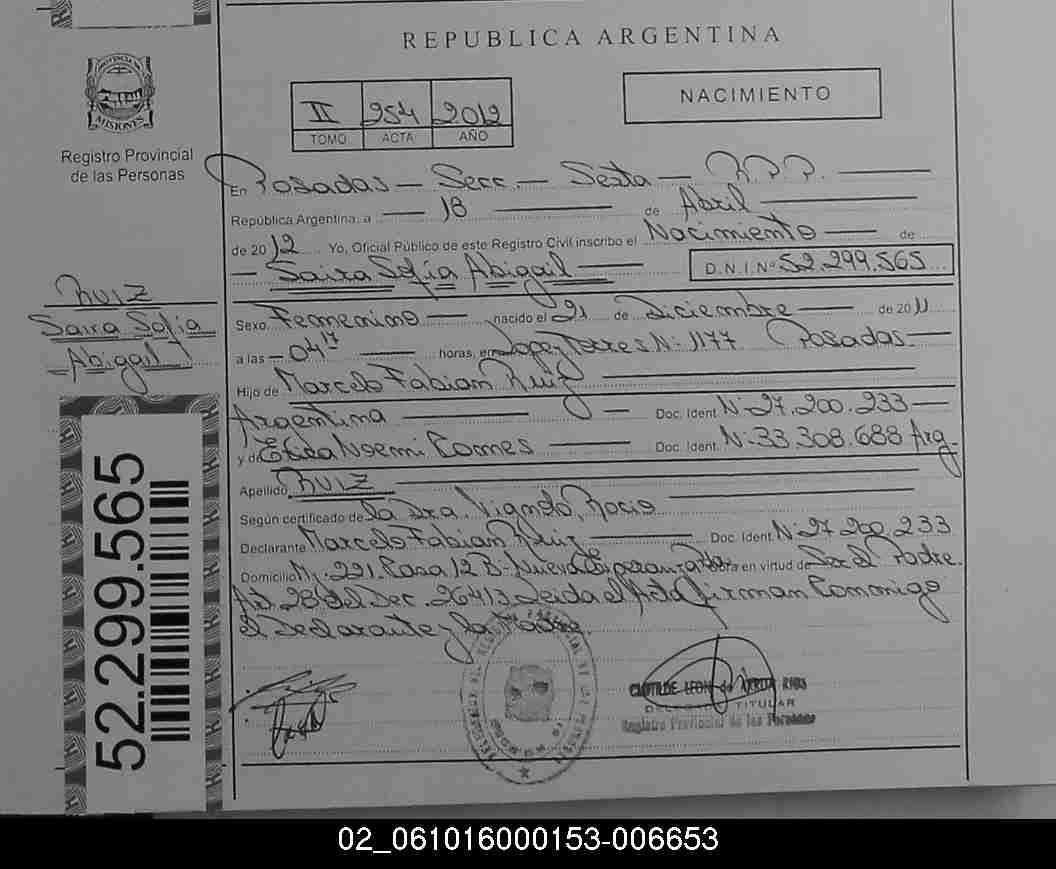 REPUBLICA ARGENTINA
II 254 2012
TOMO ACTA AÑO
NACIMIENTO
PROVINCIA DE
MISIONES
Registro Provincial
de las Personas
En Posadas — Secc. — Sexta — R.P.P.
República Argentina, a — 18 — de Abril
de 2012 Yo, Oficial Público de este Registro Civil inscribo el Nacimiento — de
— Saira Sofía Abigail — D.N.I. Nº 52.299.565
Ruiz
Saira Sofia
Abigail
Sexo Femenino — nacido el 21 de Diciembre — de 2011
a las — 04 17 — horas, en Lopez Torres N: 1177 Posadas —
Hijo de Marcelo Fabian Ruiz —
Argentina — Doc. Ident. N: 27.200.233 —
y de Noemi Gomes — Doc. Ident. N: 33.308.688 Arg.
Apellido RUIZ
Según certificado de la Dra. Rocio
Declarante Marcelo Fabian Ruiz — Doc. Ident. N: 27.200.233
Domicilio Mz. 221. Casa 12 B: Nueva Esperanza Obra en virtud de Ser el Padre.
Art. 28 del Dec. 2641/3 Leida el Acta firman Conmigo
el Declarante y la Madre.
52.299.565
CLOTILDE LEON de RIOS
DELEGADO TITULAR
Registro Provincial de las Personas
02_061016000153-006653